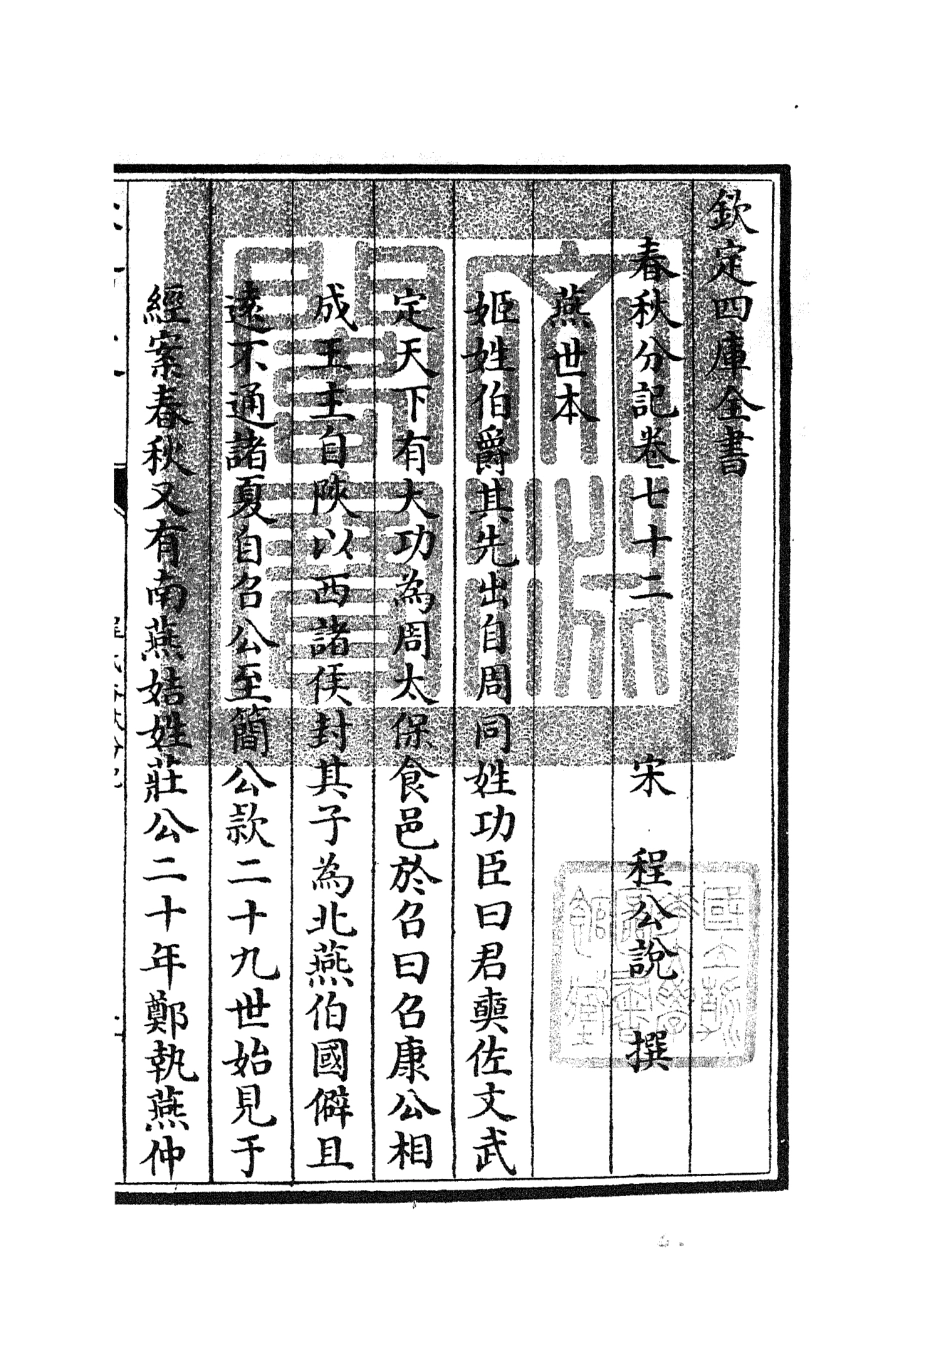 欽定四庫全書
春秋分記卷七十二
宋 程公說 撰
燕世本
姬姓伯爵其先出自周同姓功臣曰君奭佐文武
定天下有大功為周太保食邑於召曰召康公相
成王主自陝以西諸侯封其子為北燕伯國僻且
遠不通諸夏自召公至簡公款二十九世始見于
經案春秋又有南燕姞姓莊公二十年鄭執燕仲